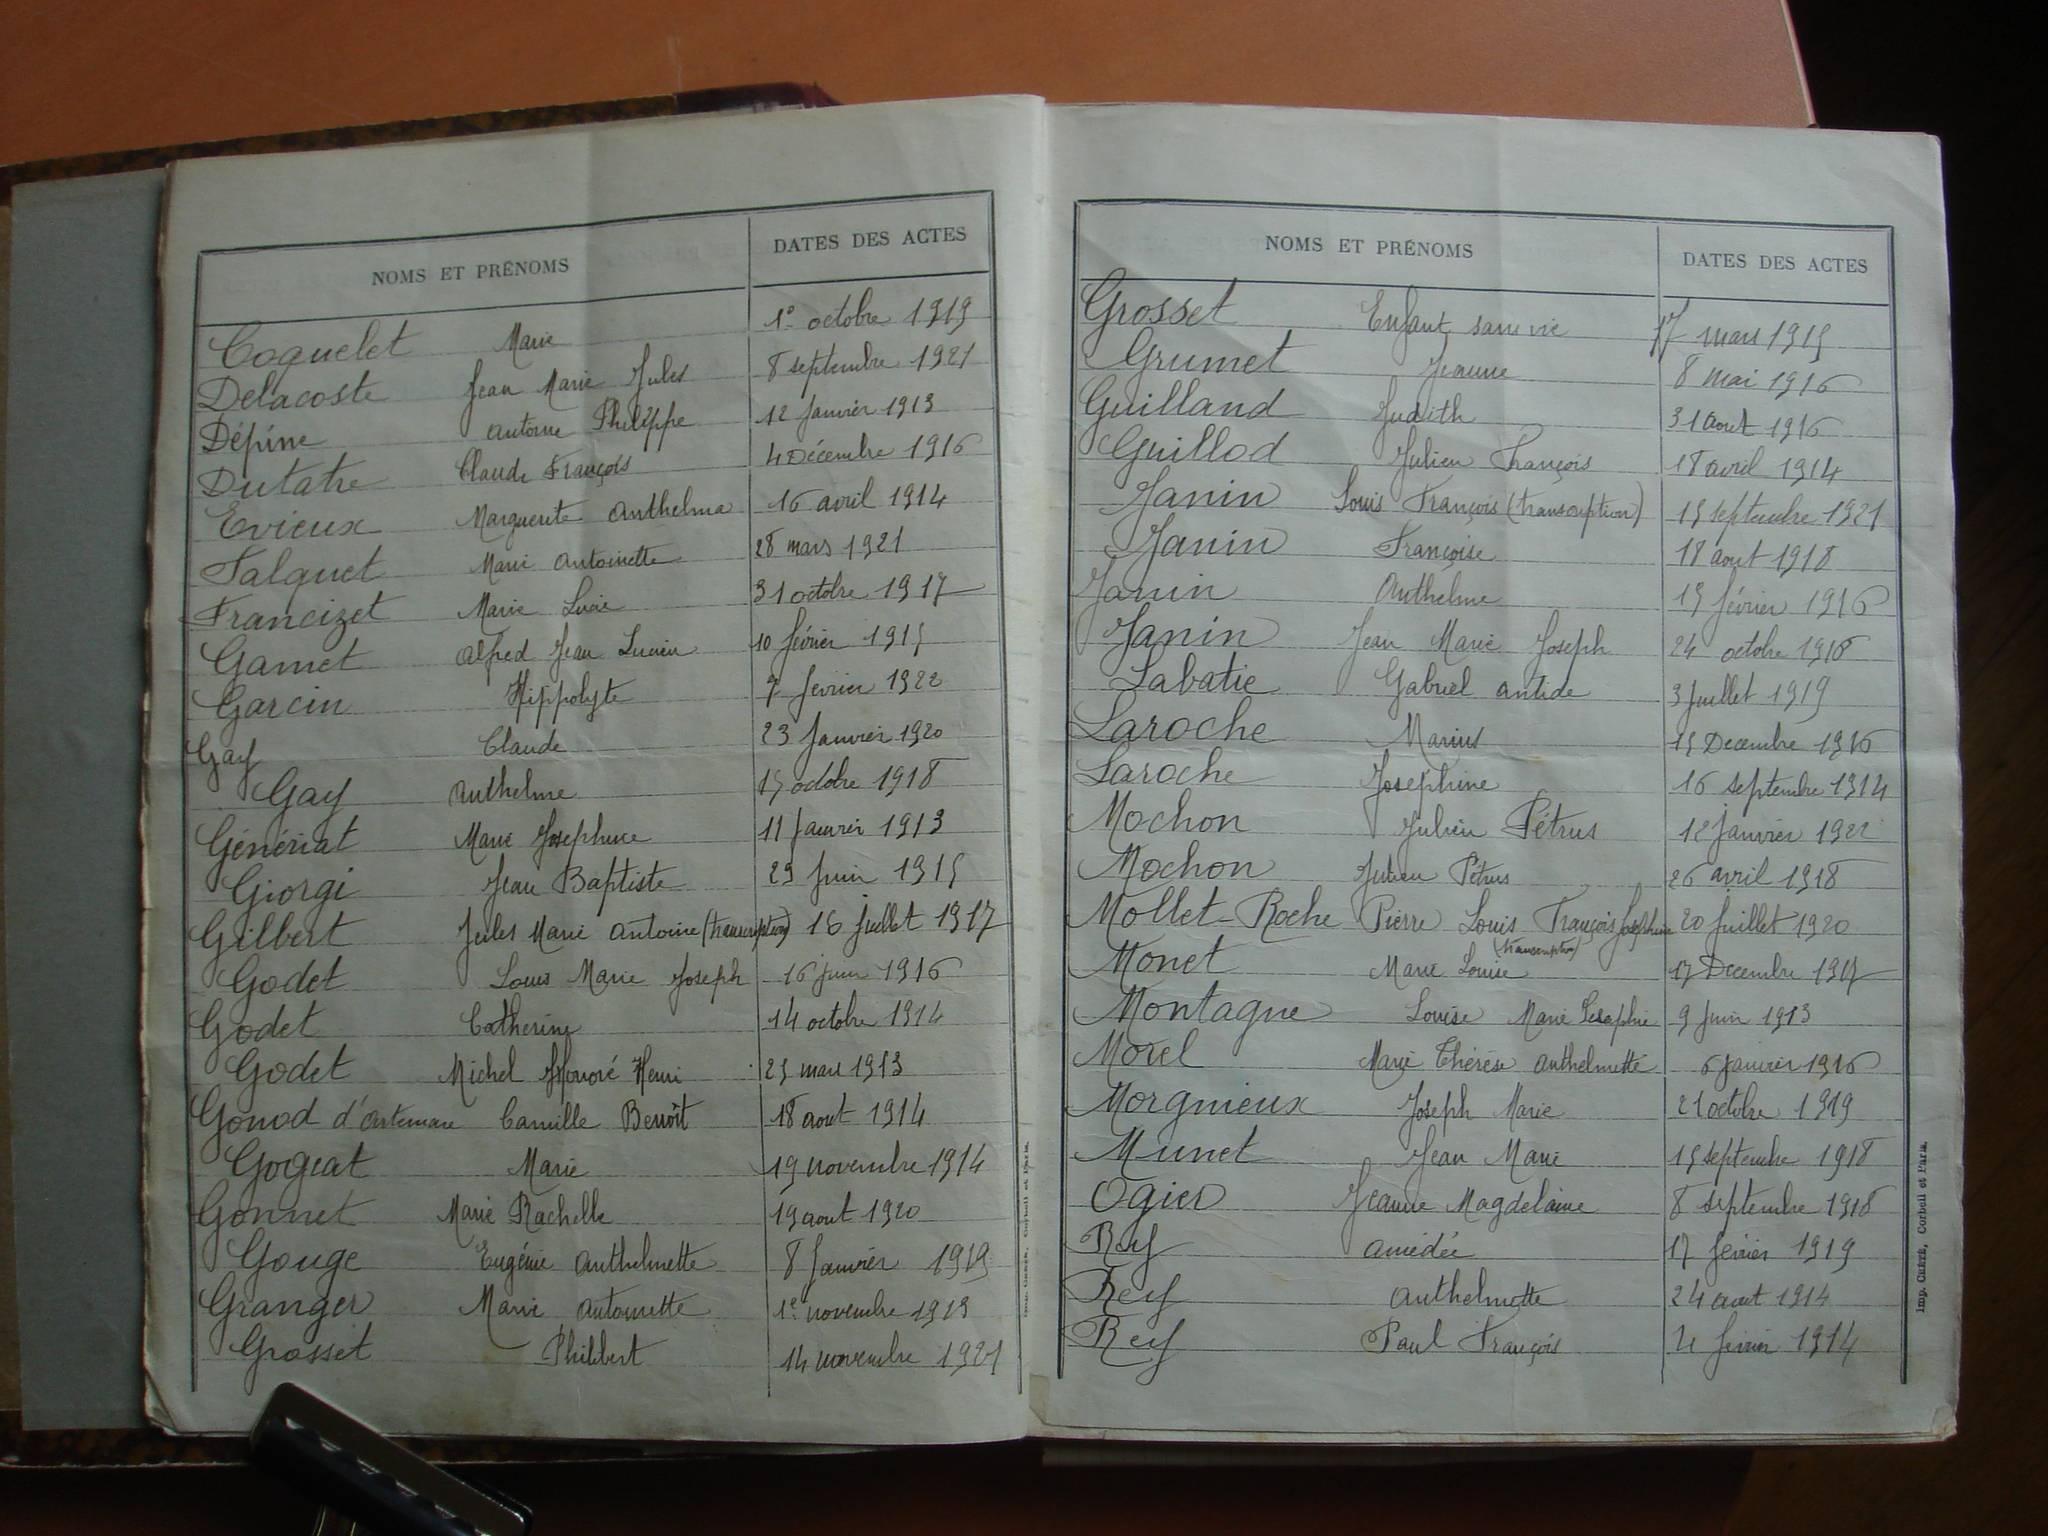 NOMS ET PRÉNOMS DATES DES ACTES
Coquelet Marie 1º octobre 1919
Delacoste Jean Marie Jules 8 septembre 1921
Dépine Antoine Philippe 12 Janvier 1913
Dutatre Claude François 4 Décembre 1916
Evieux Marguerite Anthelma 16 avril 1914
Falquet Marie Antoinette 28 mars 1921
Francizet Marie Lucie 31 octobre 1917
Gamet Alfred Jean Lucien 10 février 1915
Garcin Hippolyte 7 fevrier 1922
Gay Claude 23 Janvier 1920
Gay Anthelme 15 octobre 1918
Génériat Marie Josephine 11 Janvier 1913
Giorgi Jean Baptiste 29 Juin 1915
Gilbert Jules Marie Antoine (transcription) 16 Juillet 1917
Godet Louis Marie Joseph 16 Juin 1916
Godet Catherine 14 octobre 1914
Godet Michel Honoré Henri 25 mars 1913
Gonod d'Artemare Camille Benoît 18 aout 1914
Gogeat Marie 19 novembre 1914
Gonnet Marie Rachelle 19 aout 1920
Gouge Eugénie Anthelmette 8 Janvier 1919
Granger Marie Antoinette 1e novembre 1919
Grosset Philibert 14 novembre 1921
NOMS ET PRÉNOMS DATES DES ACTES
Grosset Enfant sans vie 17 mars 1915
Grumet Jeanne 8 mai 1916
Guilland Judith 31 aout 1916
Guillod Julien François 18 avril 1914
Janin Louis François (transcription) 15 septembre 1921
Janin Françoise 18 aout 1918
Janin Anthelme 19 février 1916
Janin Jean Marie Joseph 24 octobre 1918
Labatie Gabriel Antide 3 Juillet 1919
Laroche Marius 15 Decembre 1916
Laroche Josephine 16 septembre 1914
Mochon Julien Pétrus 12 Janvier 1922
Mochon Julien Pétrus 26 avril 1918
Mollet-Roche Pierre Louis François Josephine 20 Juillet 1920
(transcription)
Monet Marie Louise 17 Decembre 1917
Montagne Louise Marie 9 Juin 1913
Morel Marie Thérèse Anthelmette 6 Janvier 1916
Morgnieux Joseph Marie 21 octobre 1919
Munet Jean Marie 15 septembre 1918
Ogier Jeanne Magdelaine 8 septembre 1918
Rey Amédée 17 fevrier 1919
Rey Anthelmette 24 aout 1914
Rey Paul François fevrier 1914
Imp. CRÉTÉ, Corbeil et Paris.